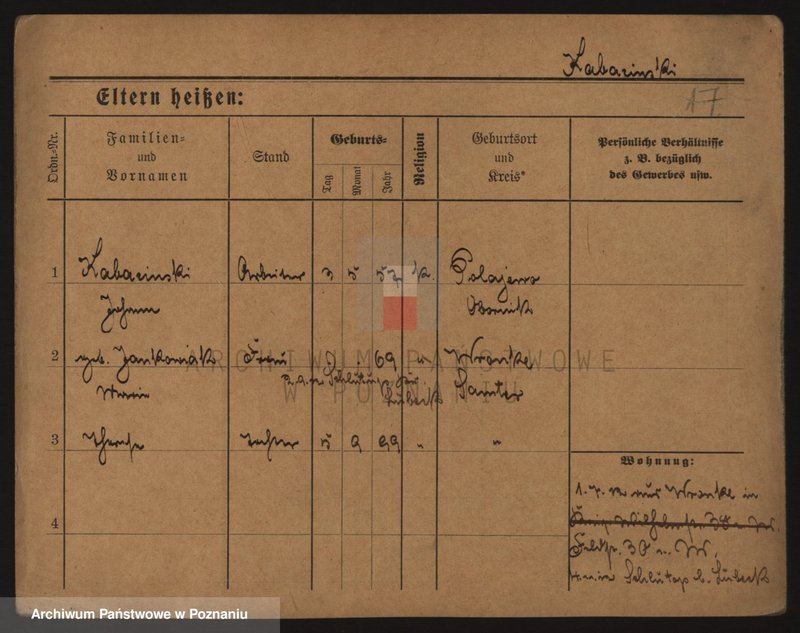 Kabacinski
17.
Eltern heißen:
Ordn.-Nr.
Familien- und Vornamen
Stand
Geburts-
Tag
Monat
Jahr
Religion
Geburtsort und Kreis*
Persönliche Verhältnisse
z. B. bezüglich
des Gewerbes usw.
1 Kabacinski Arbeiter 3 5 57 k. Polajewo
Johann Obornik
2 geb. Jankowiak Frau 69 " Wronke
Maria Schlutup Lübeck Samter
3 Therese Tochter 5 9 99 " "
4
Wohnung:
1. 7. aus Wronke in
Feldstr. 30
Schlutup b. Lübeck
ARCHIWUM PAŃSTWOWE
W POZNANIU
Archiwum Państwowe w Poznaniu